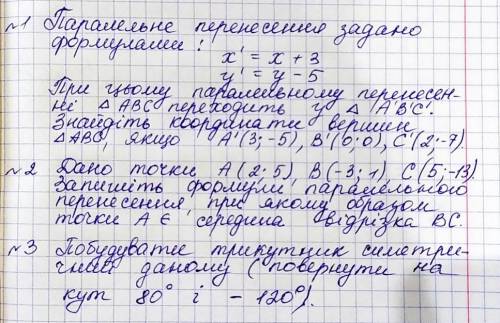 №1 Паралельне перенесення задано
формулами:
x' = x + 3
y' = y - 5
При цьому паралельному перенесен-
ні △ ABC переходить у △ A'B'C'.
Знайдіть координати вершин
△ABC, якщо A'(3;-5), B'(0;0), C'(2;-7).
№2 Дано точки A(2;5), B(-3;1), C(5;-13).
Запишіть формули паралельного
перенесення, при якому образом
точки A є середина відрізка BC.
№3 Побудувати трикутник симетри-
чний даному (повернути на
кут 80° і -120°).